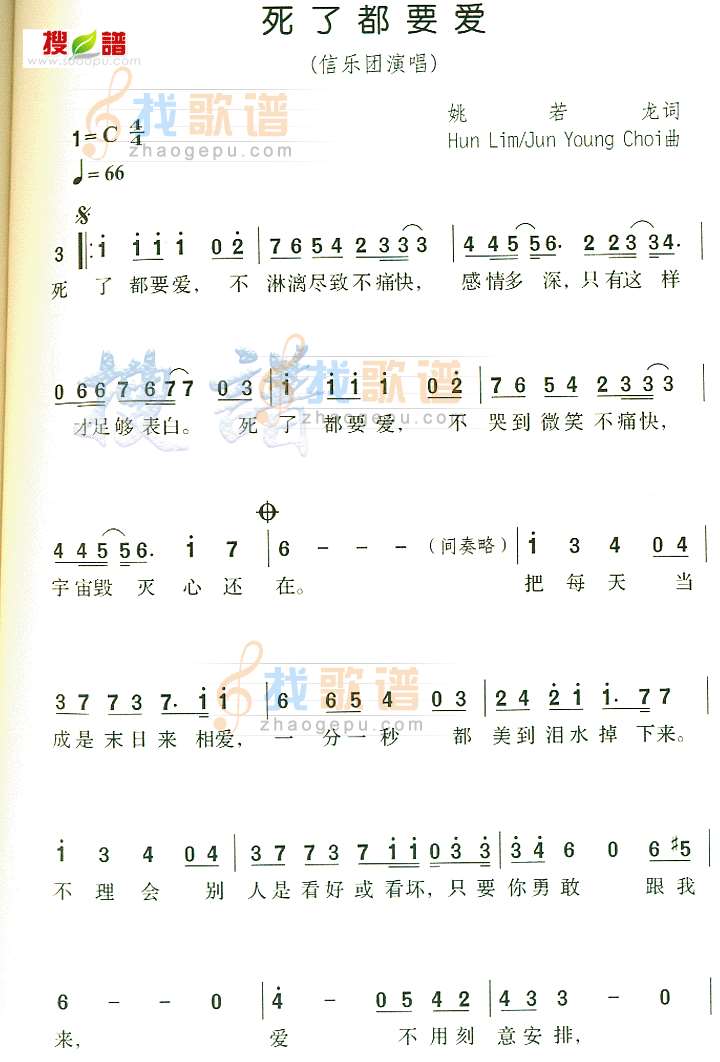 搜谱
www.sooopu.com
死了都要爱
(信乐团演唱)
找歌谱
zhaogepu.com
1=C 4/4
姚若龙词
Hun Lim/Jun Young Choi曲
♩=66
3 ‖: i i i i 0 2 | 7 6 5 4 2 3 3 3 | 4 4 5 5 6. 2 2 3 3 4. |
死 了 都要爱, 不 淋漓尽致不痛快, 感情多 深,只有这 样
0 6 6 7 6 7 7 0 3 | i i i i 0 2 | 7 6 5 4 2 3 3 3 |
找歌谱
zhaogepu.com
才足够 表白。 死 了 都要爱, 不 哭到微笑不痛快,
4 4 5 5 6. i 7 | 6 - - - (间奏略) | i 3 4 0 4 |
宇宙毁 灭心还 在。 把每天 当
找歌谱
zhaogepu.com
3 7 7 3 7. i i | 6 6 5 4 0 3 | 2 4 2 i i. 7 7 |
成是末日来 相爱, 一 分一秒 都 美到泪水掉 下来。
i 3 4 0 4 | 3 7 7 3 7 i i 0 3 3 | 3 4 6 0 6 #5 |
不理会 别 人是看好或看坏,只要你勇敢 跟我
6 - - 0 | 4 - 0 5 4 2 | 4 3 3 0 0 |
来, 爱 不用刻 意安排,